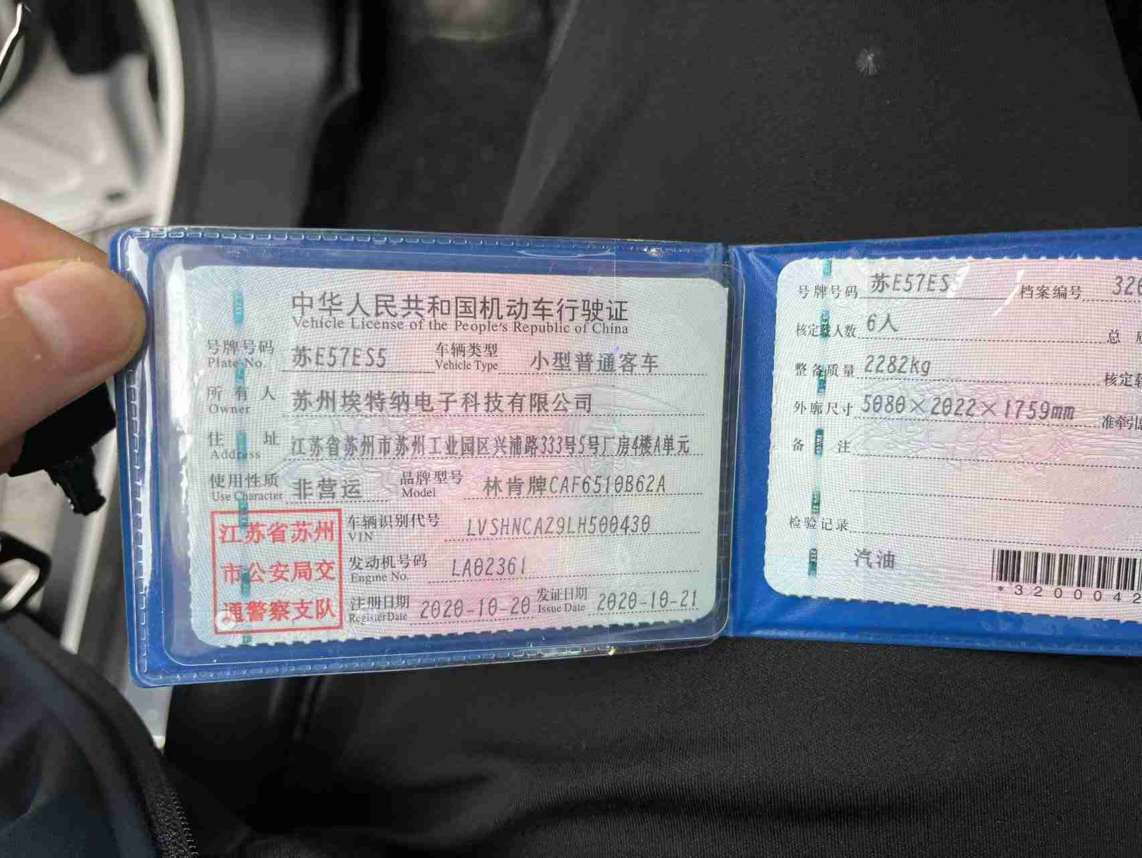 中华人民共和国机动车行驶证
Vehicle License of the People's Republic of China
号牌号码 苏E57ES5 车辆类型 小型普通客车
Plate No. Vehicle Type
所有人 苏州埃特纳电子科技有限公司
Owner
住址 江苏省苏州市苏州工业园区兴浦路333号5号厂房4楼A单元
Address
使用性质 非营运 品牌型号 林肯牌CAF6510B62A
Use Character Model
江苏省苏州
市公安局交
通警察支队
车辆识别代号 LVSHNCAZ9LH500430
VIN
发动机号码 LA02361
Engine No.
注册日期 2020-10-20 发证日期 2020-10-21
Register Date Issue Date
号牌号码 苏E57ES 档案编号 320
核定载人数 6人 总
整备质量 2282kg 核定载
外廓尺寸 5080×2022×1759mm 准牵引
备注
检验记录
汽油
*3200042